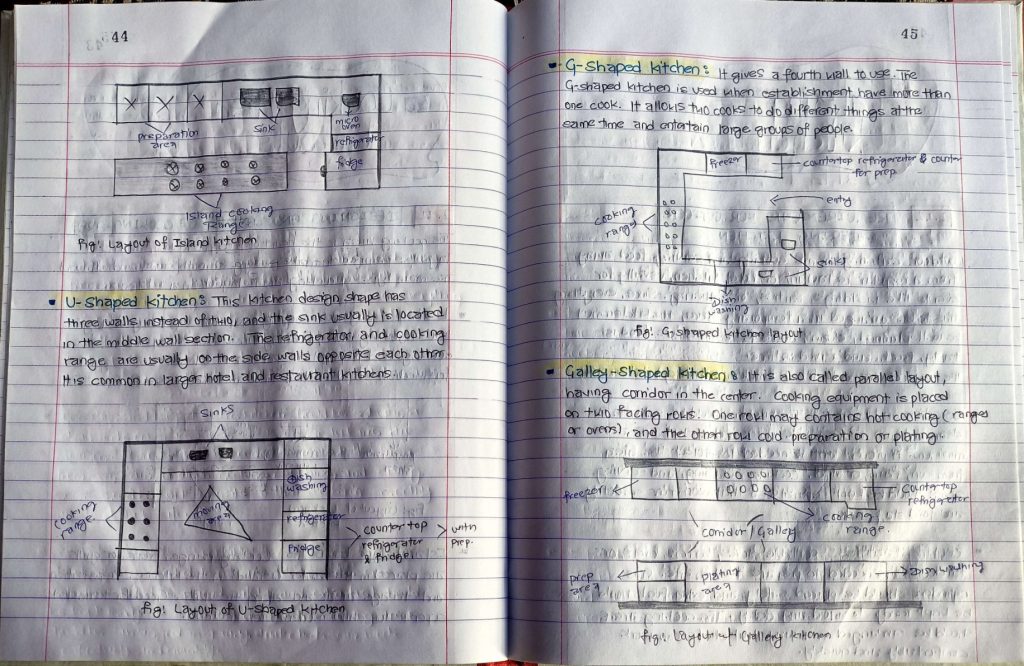 44
preparation
area
sink
micro
oven
refrigerator
fridge
Island cooking
Range
fig: Layout of Island kitchen
• U-shaped kitchen: This kitchen design shape has
three walls instead of two, and the sink usually is located
in the middle wall section. The refrigerator, and cooking
range are usually on the side walls opposite each other.
It is common in larger hotel and restaurant kitchens.
sinks
dish
washing
cooking
range
moving
area
refrigerator
fridge
counter top
refrigerator
& fridge
with
prep.
fig: Layout of U-shaped kitchen
45
• G-shaped kitchen: It gives a fourth wall to use. The
G-shaped kitchen is used when establishment have more than
one cook. It allows two cooks to do different things at the
same time and entertain large groups of people.
freezer
countertop refrigerator & counter
for prep.
entry
cooking
range
sinks
Dish
washing
fig: G-shaped kitchen layout
• Galley-shaped kitchen: It is also called parallel layout,
having corridor in the center. Cooking equipment is placed
on two facing rows. One row may contains hot cooking (ranges
or ovens), and the other row cold preparation or plating.
freezer
counter top
refrigerator
cooking
range
corridor/Galley
prep
area
plating
area
Dish washing
fig: Layout of Gallery kitchen